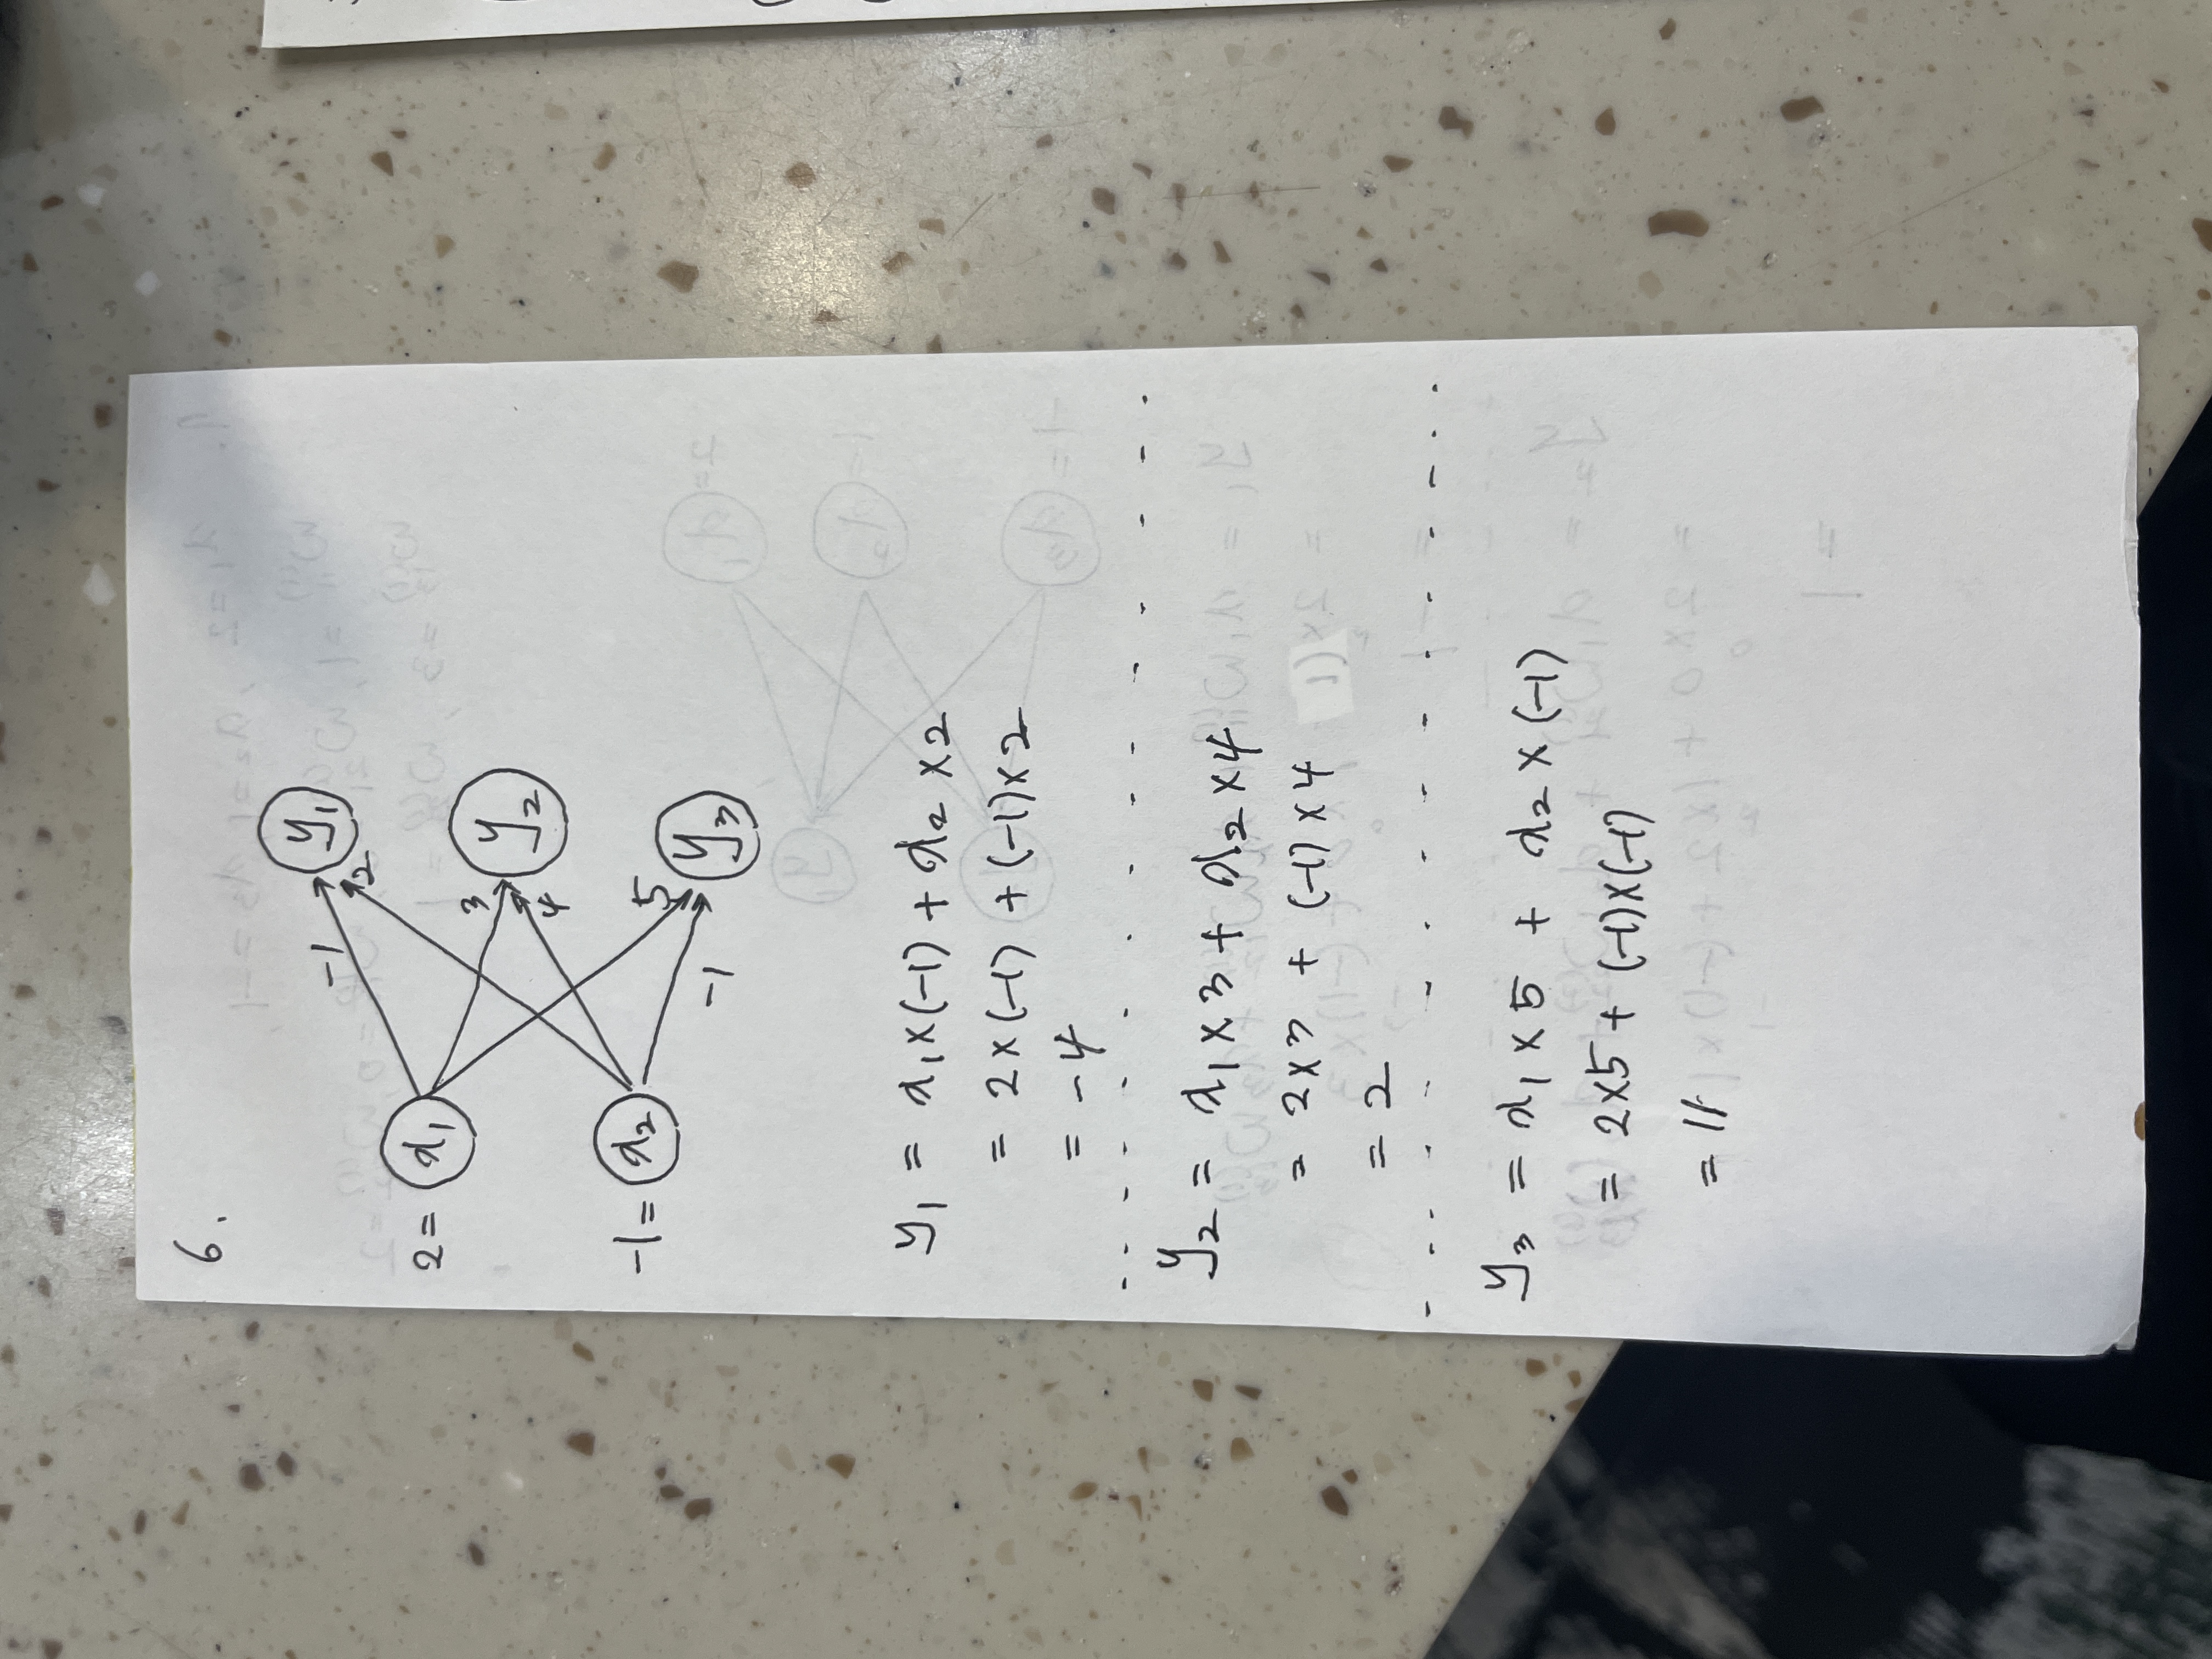 6.
-1
y₁
2
2 = x₁
3
y₂
4
-1 = x₂
5
-1
y₃
y₁ = x₁×(-1) + x₂ ×2
= 2×(-1) + (-1)×2
= -4
y₂ = x₁×3 + x₂×4
= 2×3 + (-1)×4
= 2
y₃ = x₁×5 + x₂×(-1)
= 2×5 + (-1)×(-1)
= 11